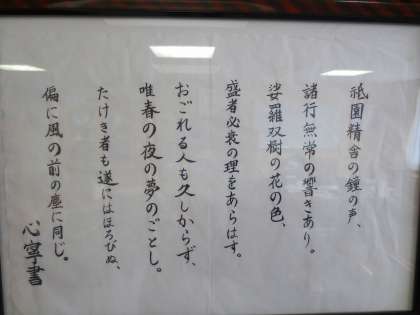 祇園精舎の鐘の声、
諸行無常の響きあり。
娑羅双樹の花の色、
盛者必衰の理をあらはす。
おごれる人も久しからず、
唯春の夜の夢のごとし。
たけき者も遂にはほろびぬ、
偏に風の前の塵に同じ。
心寧書